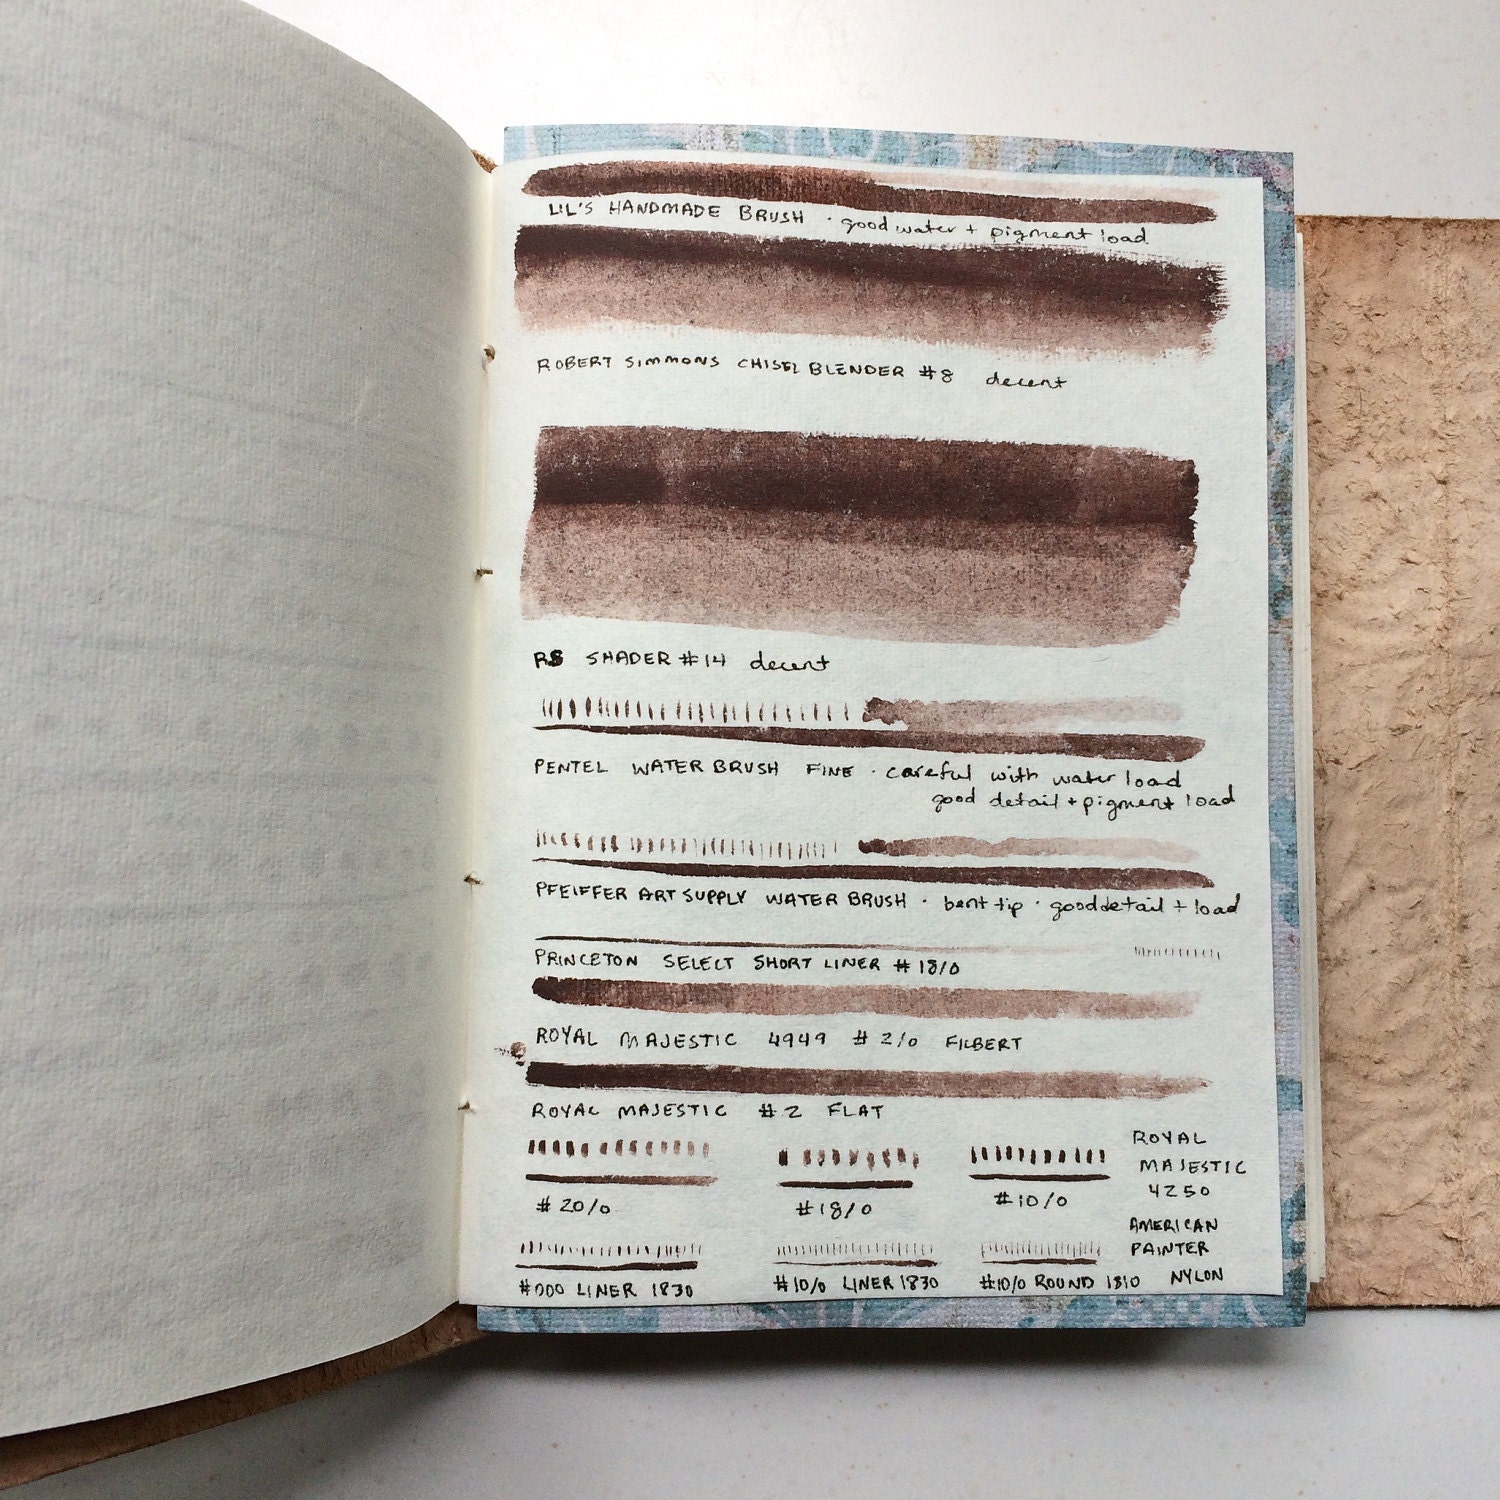 LIL'S HANDMADE BRUSH · good water + pigment load
ROBERT SIMMONS CHISEL BLENDER #8 decent
RS SHADER #14 decent
PENTEL WATER BRUSH FINE · careful with water load
good detail + pigment load
PFEIFFER ART SUPPLY WATER BRUSH · bent tip · good detail + load
PRINCETON SELECT SHORT LINER #18/0
ROYAL MAJESTIC 4949 #2/0 FILBERT
ROYAL MAJESTIC #2 FLAT
#20/0 #18/0 #10/0
ROYAL
MAJESTIC
4250
AMERICAN
PAINTER
NYLON
#000 LINER 1830 #10/0 LINER 1830 #10/0 ROUND 1810